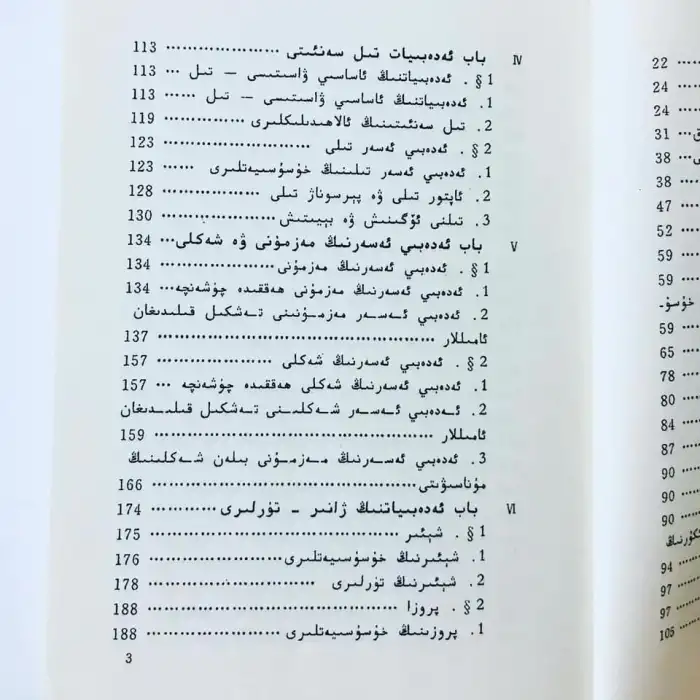 IV باب ئەدەبىيات تىل سەنئىتى ····················· 113
§ 1 . ئەدەبىياتنىڭ ئاساسىي ۋاستىسى — تىل ··· 113
1 . ئەدەبىياتنىڭ ئاساسىي ۋاستىسى — تىل ······ 113
2 . تىل سەنئىتىنىڭ ئالاھىدىلىكلىرى ················ 119
§ 2 . ئەدەبىي ئەسەر تىلى ························· 123
1 . ئەدەبىي ئەسەر تىلىنىڭ خۇسۇسىيەتلىرى ······ 123
2 . ئاپتور تىلى ۋە پېرسوناژ تىلى ·················· 128
3 . تىلنى ئۆگىنىش ۋە بېيىتىش ····················· 130
V باب ئەدەبىي ئەسەرنىڭ مەزمۇنى ۋە شەكلى ··· 134
§ 1 . ئەدەبىي ئەسەرنىڭ مەزمۇنى ····················· 134
1 . ئەدەبىي ئەسەرنىڭ مەزمۇنى ھەققىدە چۈشەنچە ··· 134
2 . ئەدەبىي ئەسەر مەزمۇنىنى تەشكىل قىلىدىغان
ئامىللار ···················································· 137
§ 2 . ئەدەبىي ئەسەرنىڭ شەكلى ····················· 157
1 . ئەدەبىي ئەسەرنىڭ شەكلى ھەققىدە چۈشەنچە ··· 157
2 . ئەدەبىي ئەسەر شەكلىنى تەشكىل قىلىدىغان
ئامىللار ···················································· 159
3 . ئەدەبىي ئەسەرنىڭ مەزمۇنى بىلەن شەكلىنىڭ
مۇناسىۋىتى ················································ 166
VI باب ئەدەبىياتنىڭ ژانىر - تۈرلىرى ············ 174
§ 1 . شېئىر ············································· 175
1 . شېئىرنىڭ خۇسۇسىيەتلىرى ························ 176
2 . شېئىرنىڭ تۈرلىرى ······························ 178
§ 2 . پروزا ············································· 188
1 . پروزىنىڭ خۇسۇسىيەتلىرى ························ 188
3
22 ····
24 ····
24 ····
31 ···
38 ···
38 ····
47 ····
52 ····
59 ····
59 ····
خۇسۇ-
59 ····
65 ····
78 ····
80 ····
84 ····
87 ····
90 ····
90 ····
90 ····
94 ····
97 ····
97 ····
105 ····